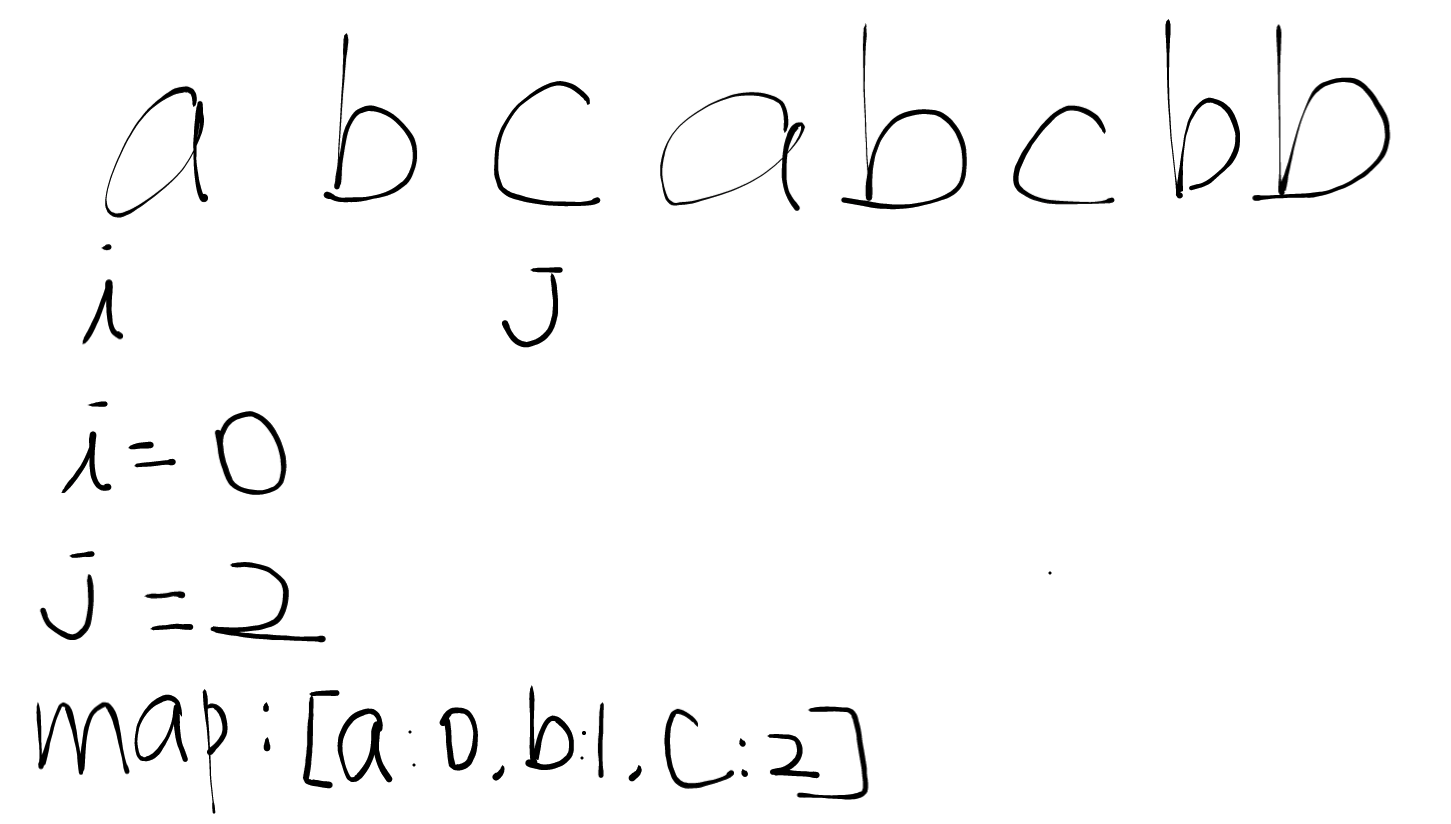 a b c a b c b b
i J
i = 0
J = 2
map : [a:0, b:1, c:2]